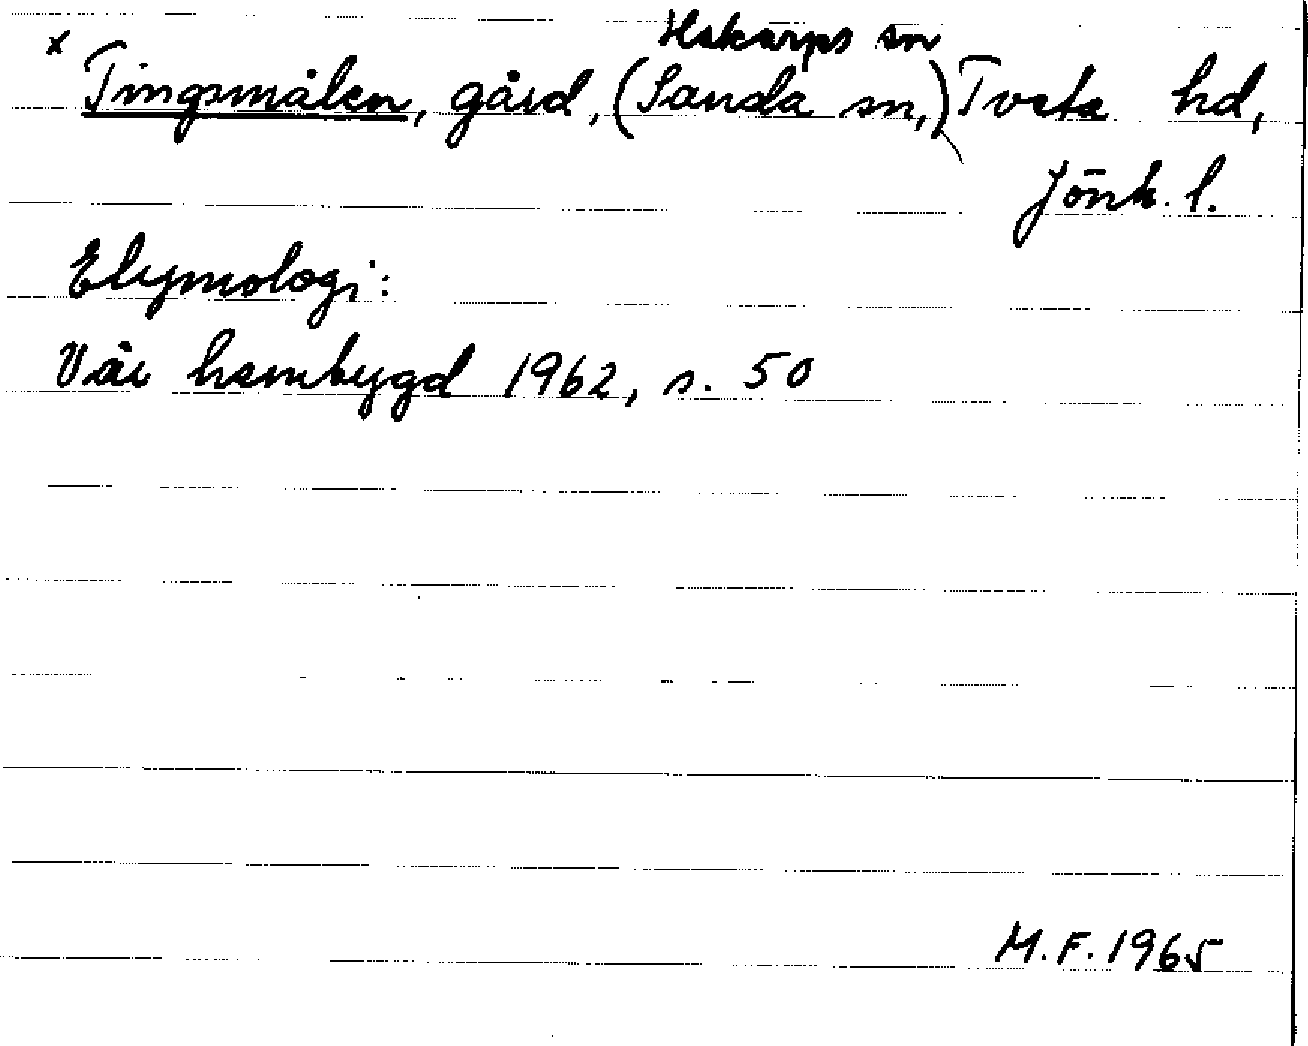 Hakarps sn
x Tingsmålen, gård, (Sanda sn,) Tveta hd,
Jönk. l.
Etymologi:
Vår hembygd 1962, s. 50
M.F. 1965